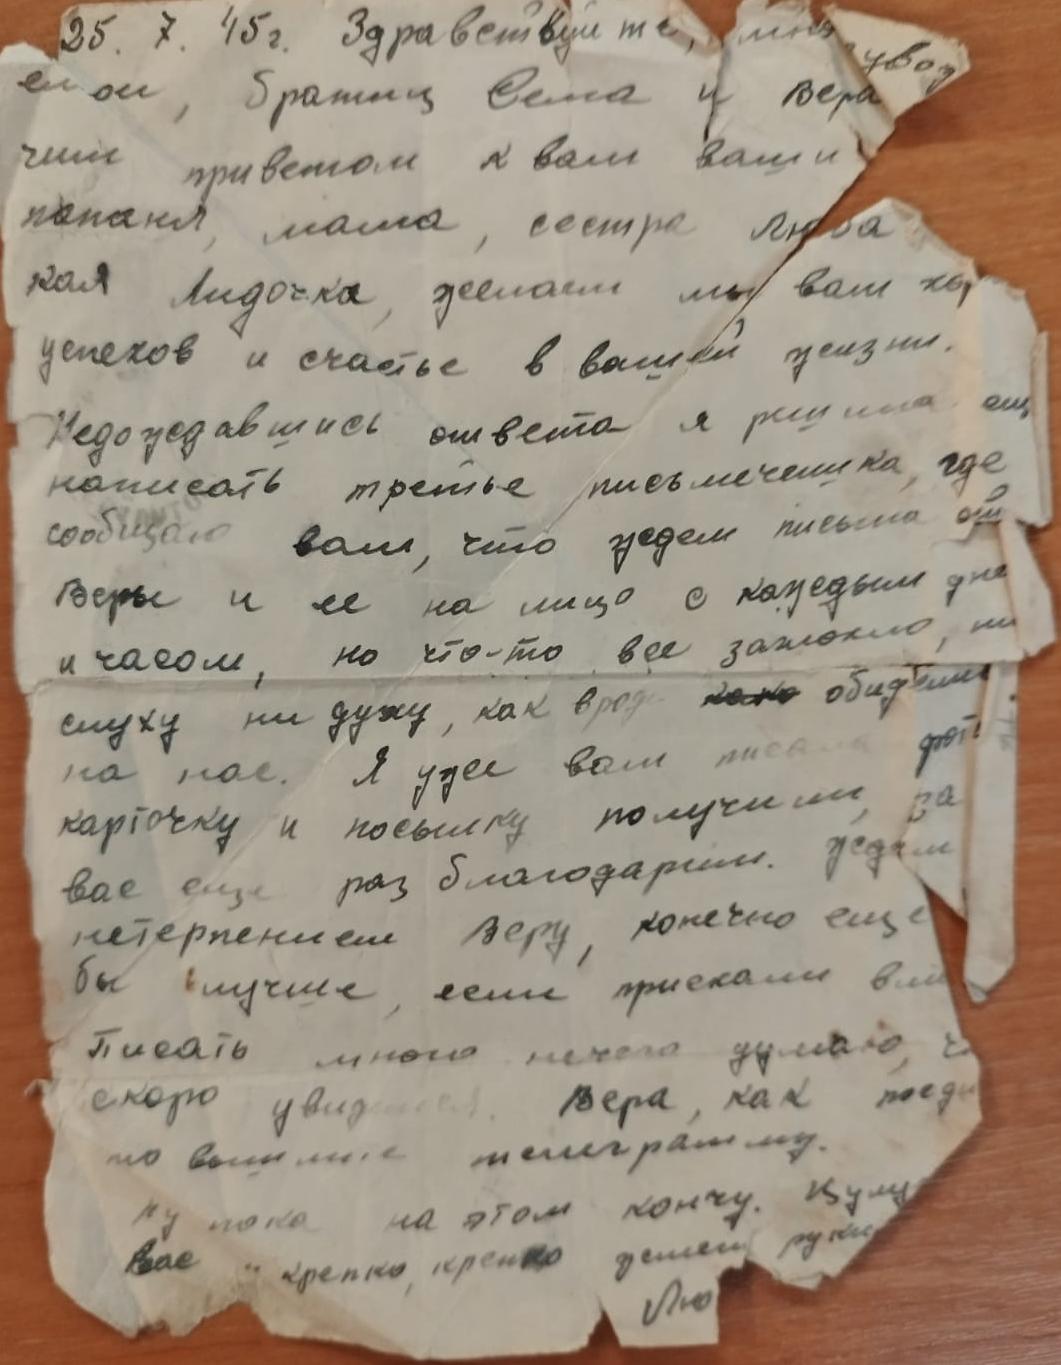 25. 7. 45г. Здравствуйте, мно
уваж
емои, братиц Сема и Вера
чим приветом к вам ваши
папаня, мама, сестра Люба
кая Лидочка, желаем мы вам хо
успехов и счастье в вашей жизни.
Недождавшись ответа я решила ещ
написать третье письмечешка, где
сообщаю вам, что ждем письма от
Веры и ее на лицо с каждым дне
и часом, но что-то все замокло, ни
слуху ни духу, как вроде обидели
на нас. Я уже вам писала фото
карточку и посылку получили, за
вас еще раз благодарим. Ждем
нетерпением Веру, конечно еще
бы лучше, если приехали вм
Писать много нечего думаю, ч
скоро увидимся. Вера, как поед
то вышлите телеграмму.
Ну пока на этом кончу. Целу
вас крепко, крепко жмем руки
Лю